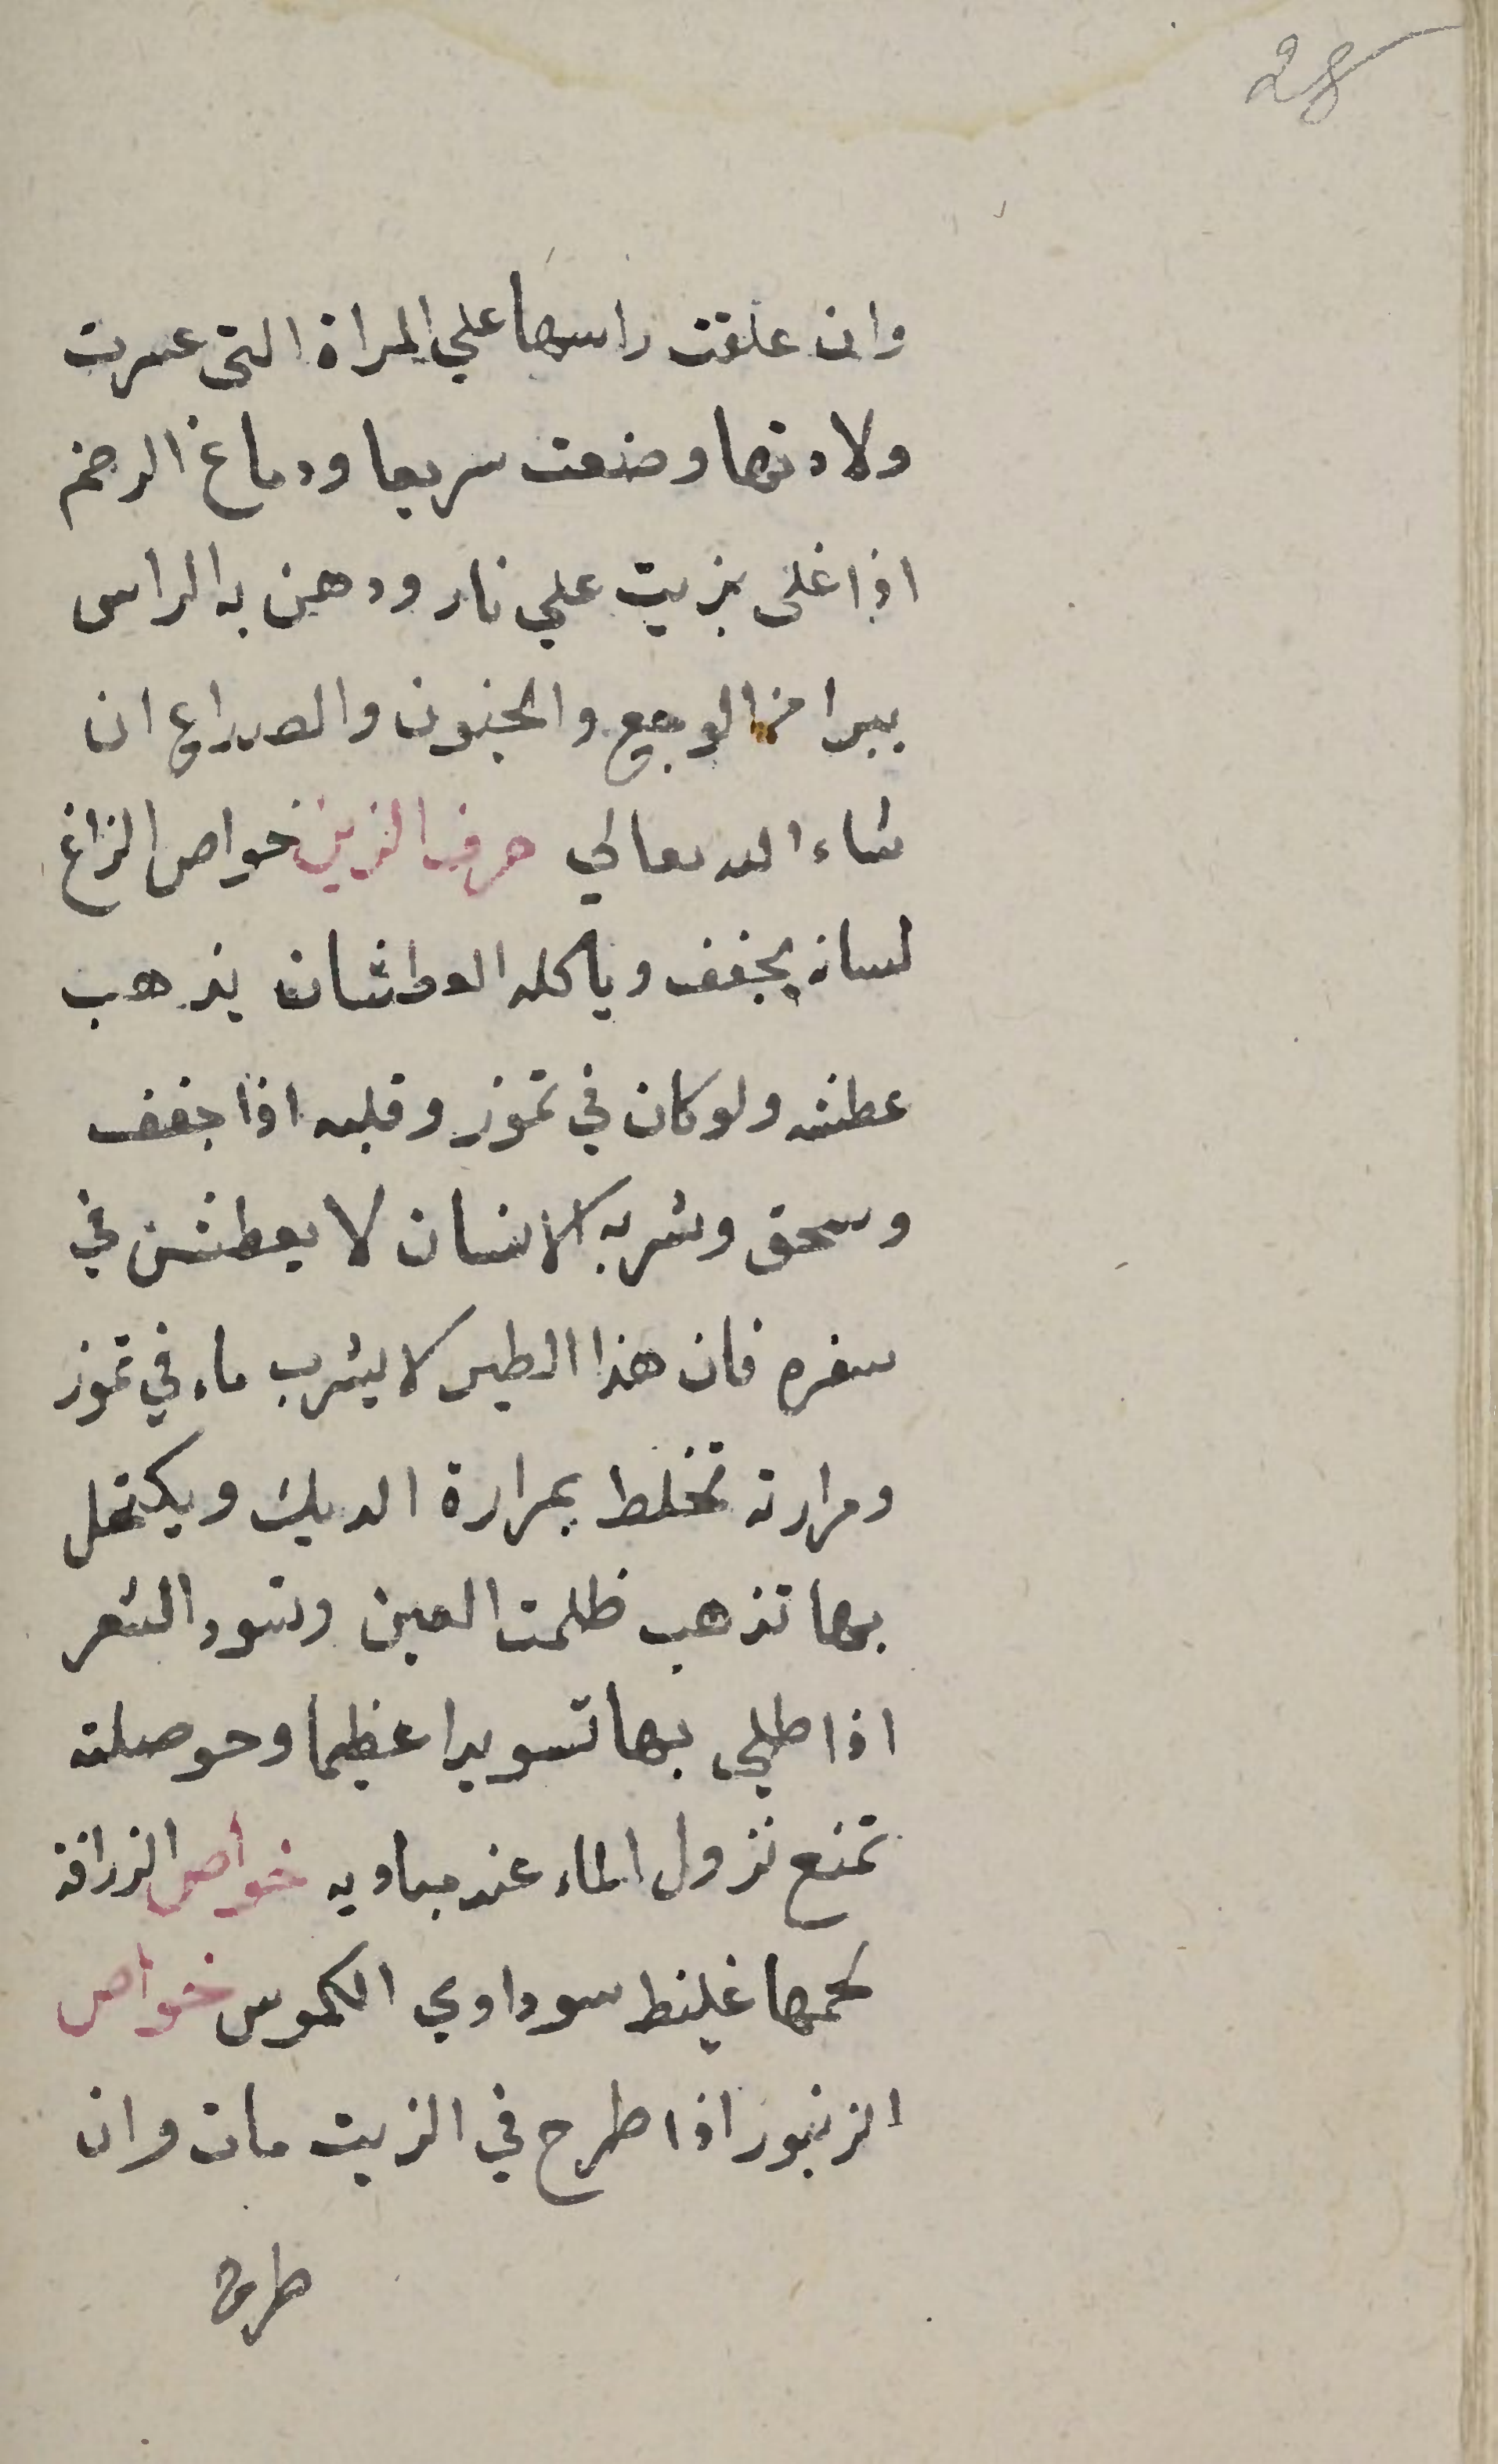 28
وان علقت راسها علي المراة التى عسرت
ولادتها وضعت سريعا ودماغ الرخم
اذا غلى بزيت علي نار ودهن به الراس
يبرا من الوجع والجنون والصداع ان
شاء الله تعالي حرف الزين خواص الزاغ
لسانه يجفف وياكله العطشان يذهب
عطشه ولو كان في تموز وقلبه اذا جفف
وسحق وشربه الانسان لا يعطش في
سفره فان هذا الطير لا يشرب ماء في تموز
ومرارته تخلط بمرارة الديك ويكتحل
بها تذهب ظلمت العين وتسود الشعر
اذا طلي بها تسويدا عظيما وحوصلته
تمنع نزول الماء عند مباديه خواص الزرافة
لحمها غليظ سوداوي الكموس خواص
الزنبور اذا طرح في الزيت مات وان
طرح